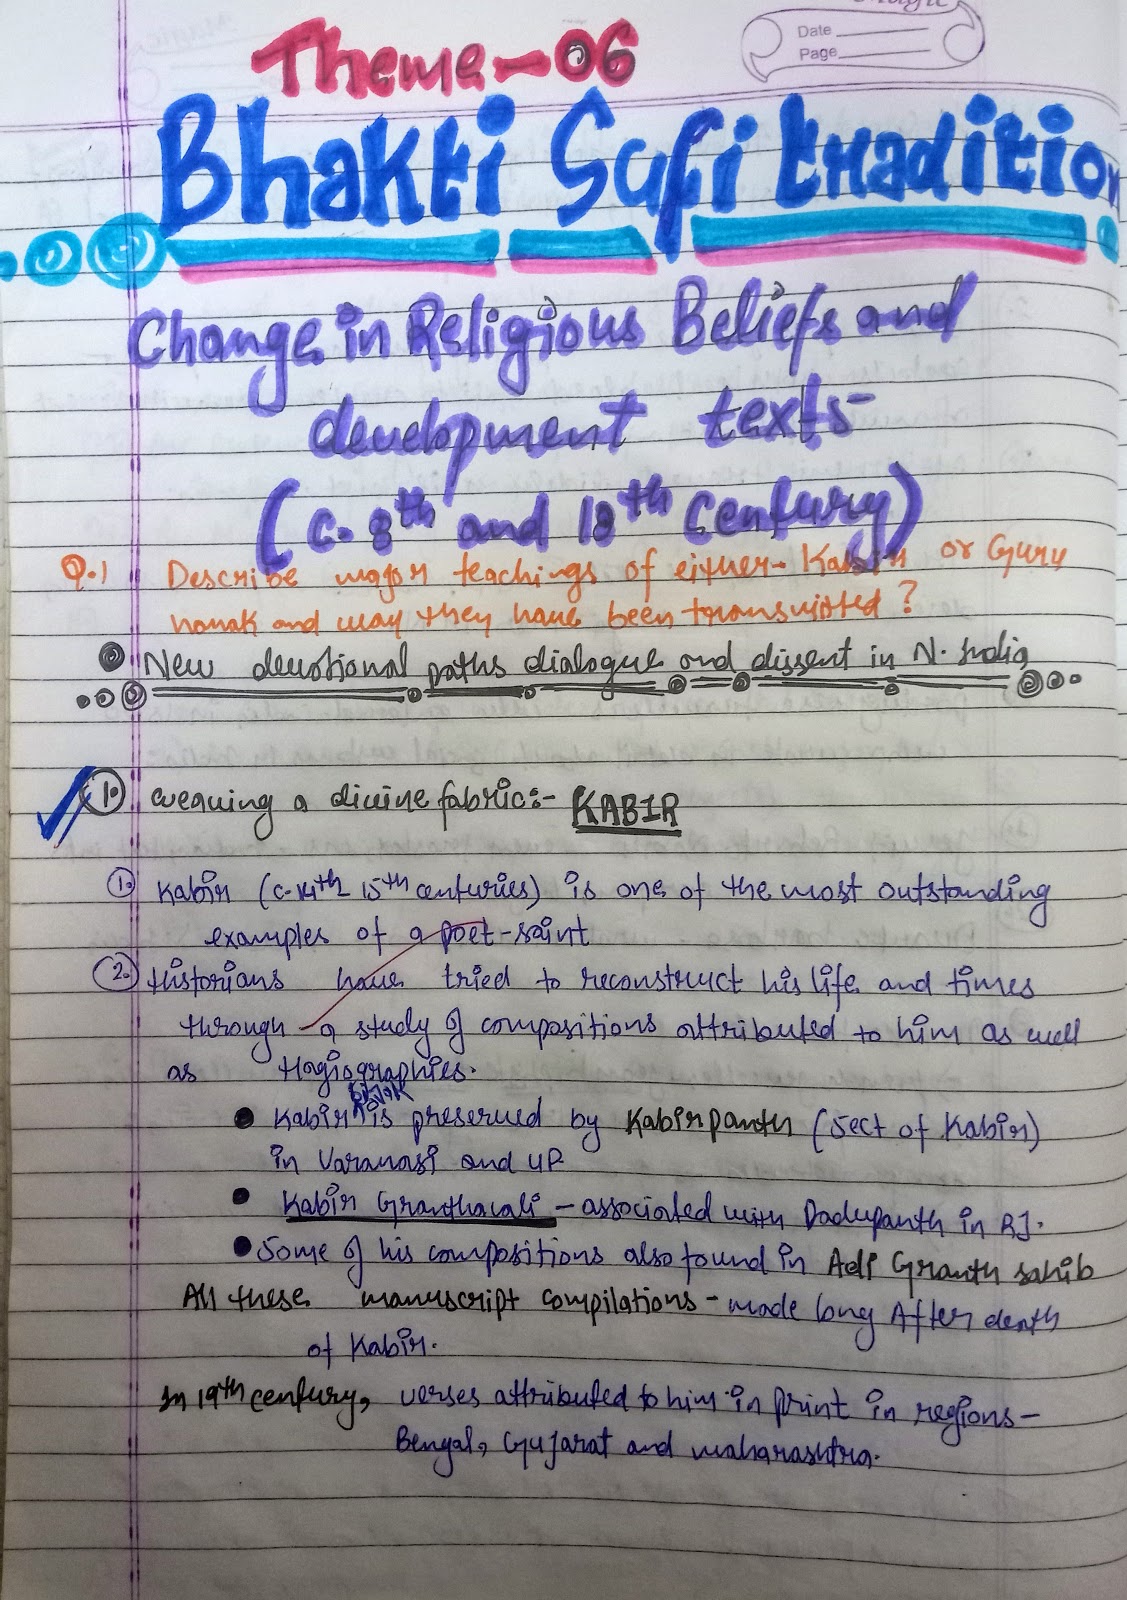 Date
Page
Theme-06
Bhakti Sufi tradition
Change in Religious Beliefs and
development texts-
(c. 8th and 18th Century)
Q.1 Describe major teachings of either- Kabir or Guru
nanak and way they have been transmitted?
New devotional paths dialogue and dissent in N. India
1. weaving a divine fabric:- KABIR
1. Kabir (c.14th- 15th centuries) is one of the most outstanding
examples of a poet-saint
2. Historians have tried to reconstruct his life and times
through a study of compositions attributed to him as well
as Hagiographies.
Bijak
Kabir ^ is preserved by Kabirpanth (sect of Kabir)
in Varanasi and UP
Kabir Granthavali - associated with Dadupanth in RJ.
Some of his compositions also found in Adi Granth sahib
All these manuscript compilations - made long After death
of Kabir.
In 19th century, verses attributed to him in print in regions-
Bengal, Gujarat and maharashtra.